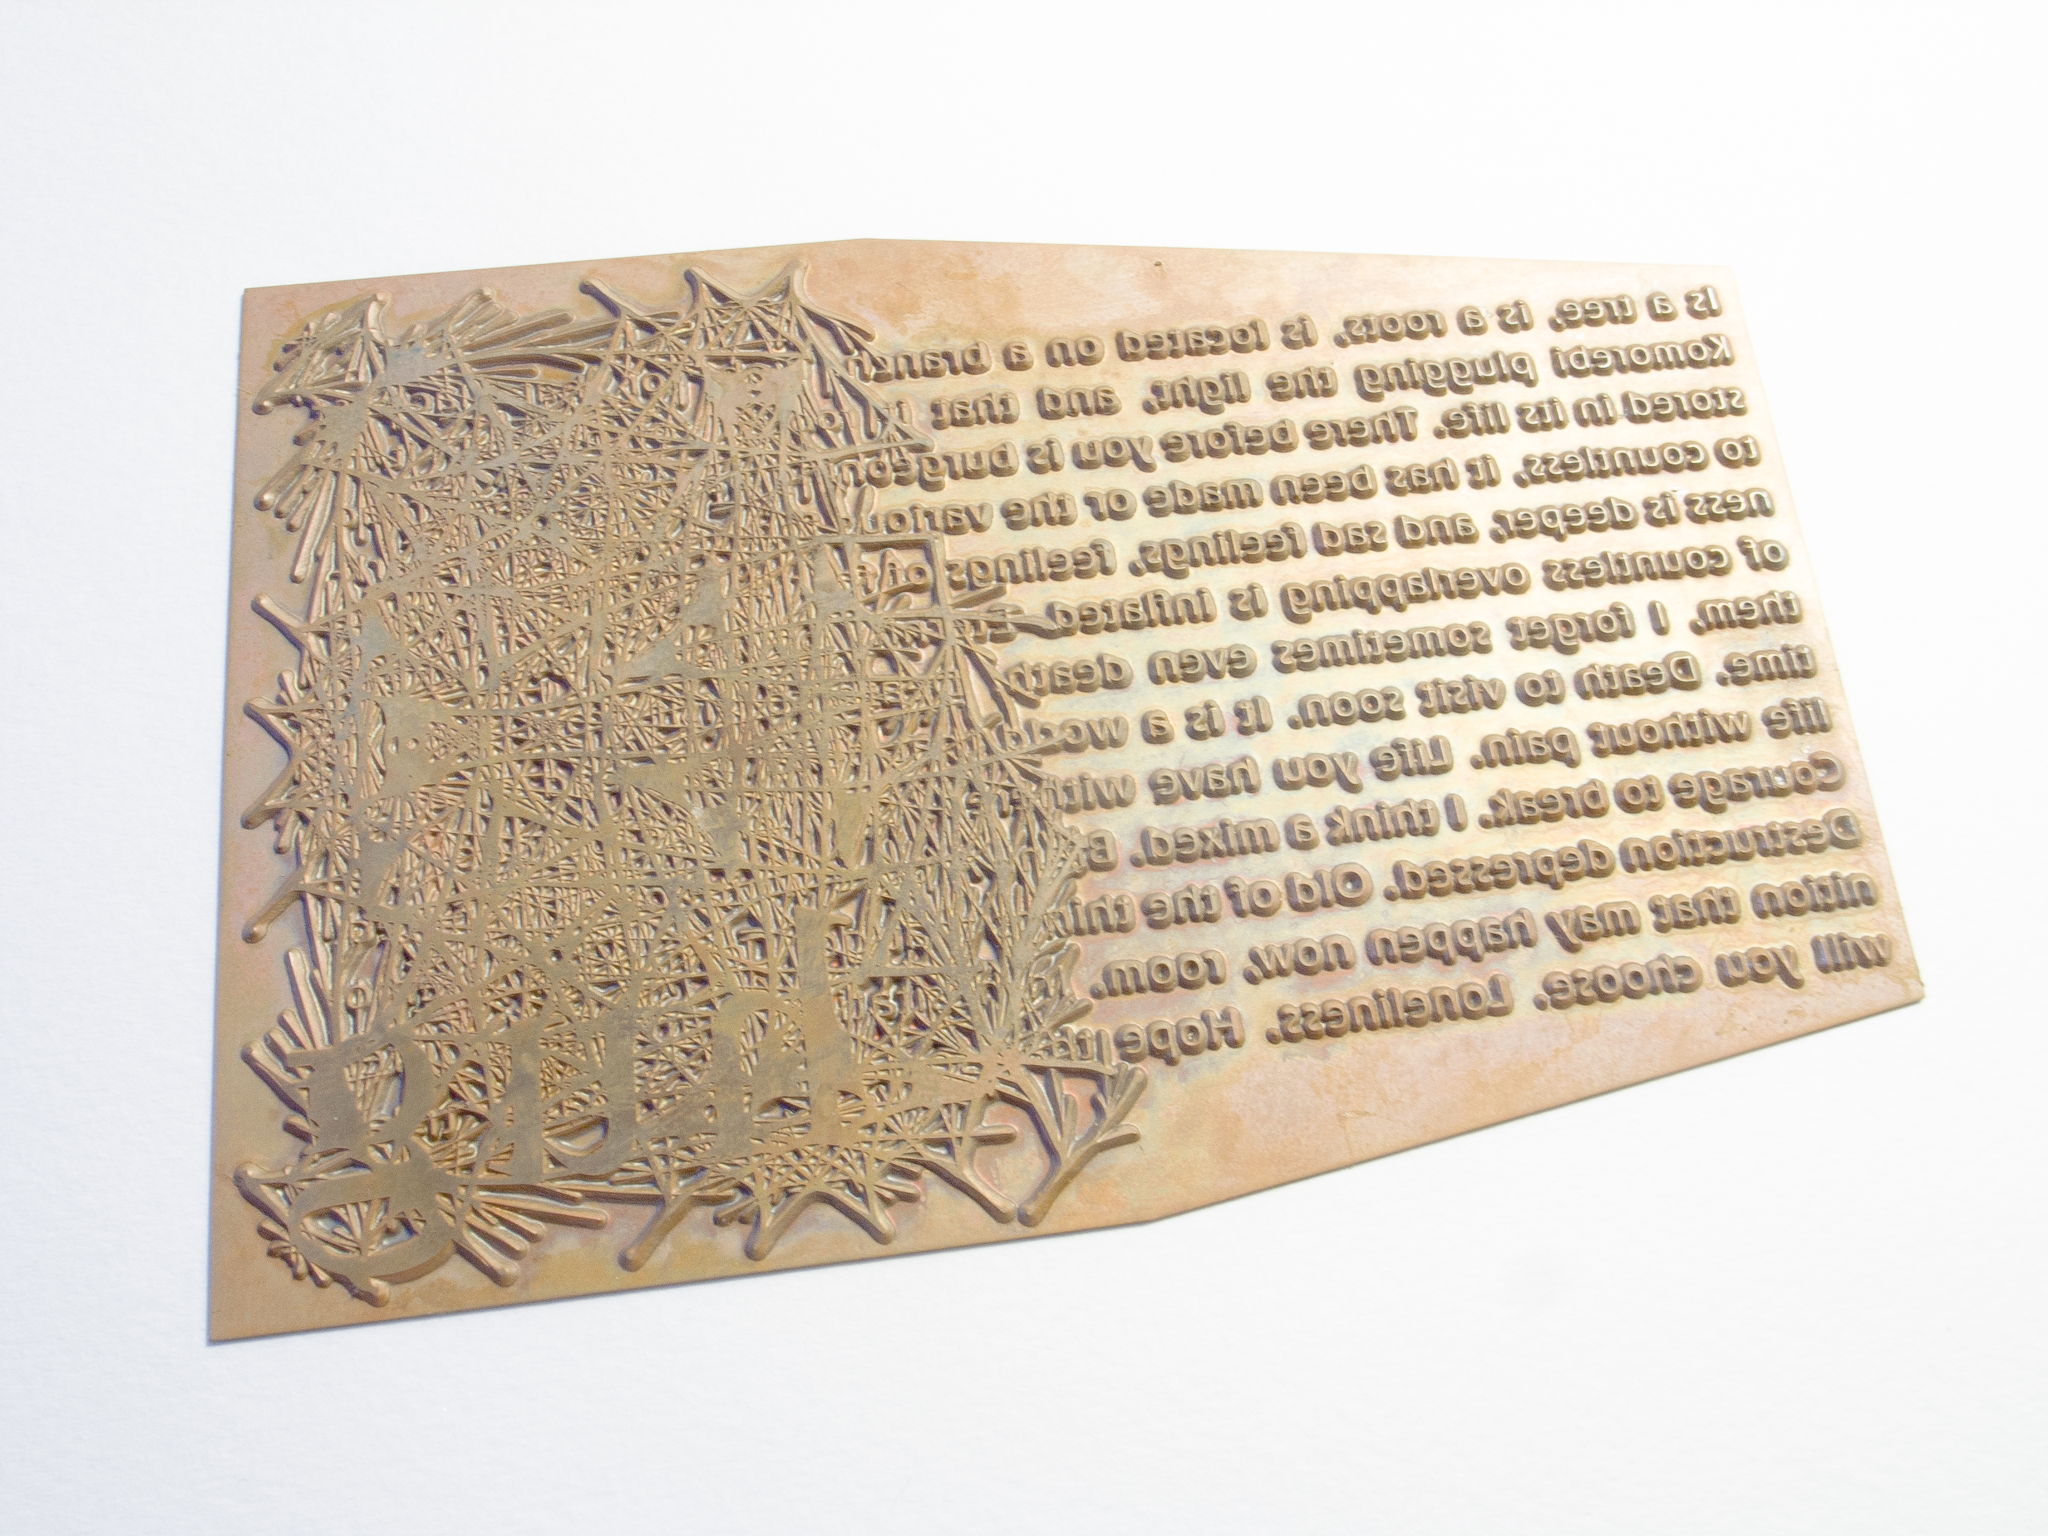 Is a tree, is a roots, is located on a branch
Komorebi plugging the light, and that it
stored in its life. There before you is burgeon
to countless, it has been made or the variou
ness is deeper, and sad feelings, feelings of
of countless overlapping is inflated
them, I forget sometimes even death
time. Death to visit soon. It is a world
life without pain. Life you have with
Courage to break. I think a mixed.
Destruction depressed. Old of the thin
nition that may happen now, room.
will you choose. Loneliness. Hope